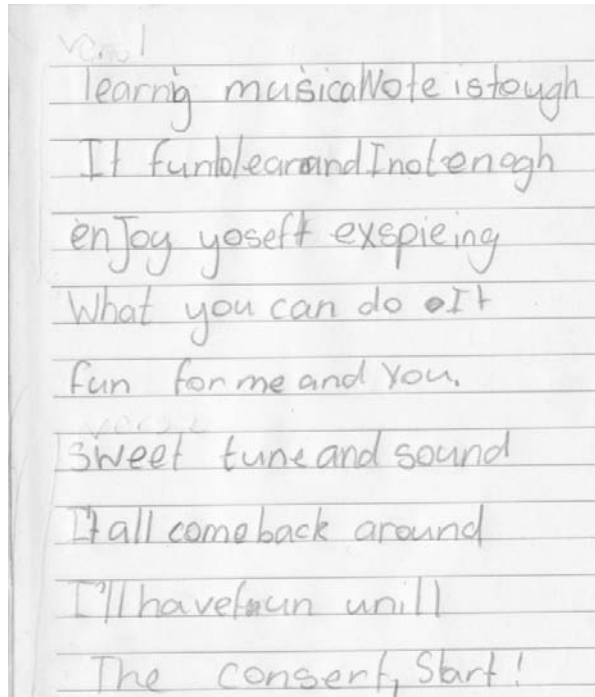 learnig musical Note is tough
It fun to learn and I not enogh
enJoy yoseft exspieing
What you can do It
fun for me and You.
sweet tune and sound
It all come back around
I'll have fun unill
The consert, Start!